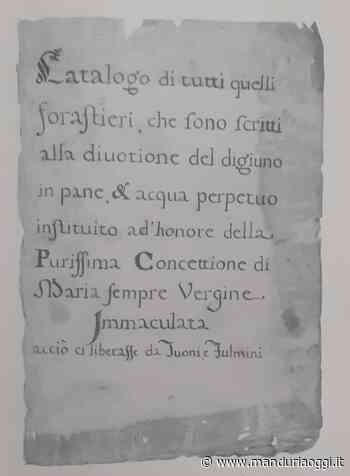 Catalogo di tutti quelli
forastieri, che sono scritti
alla diuotione del digiuno
in pane, & acqua perpetuo
instituito ad'honore della
Purissima Concettione di
Maria sempre Vergine
Immaculata
acciò ci liberasse da Tuoni e Fulmini
© www.manduriaoggi.it